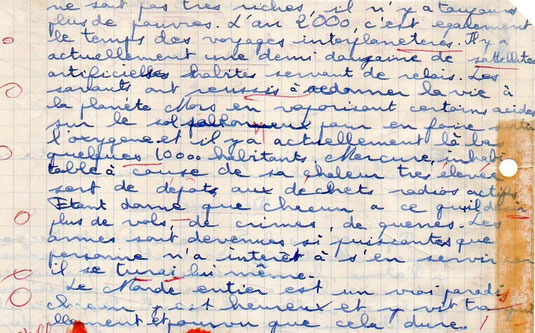 ne sont pas très riches, il n'y a toujours
plus de pauvres. L'an 2'000, c'est également
le temps des voyages interplanéteres. Il y a
actuellement une demi douzaine de sattelites
artificielles habités servant de relais. Les
savants ont reussis à redonner la vie à
la planète Mars en vaporisant certains acides
sur le sol pour en faire
l'oxygène et il y a actuellement là bas
quelques 1000 habitants. Mercure, inhabi
table à cause de sa chaleur très élevée
sert de dépots aux dechets radios actifs
Etant donné que chacun a ce qu'il désire
plus de vols, de crimes, de guerres. Les
armes sont devenues si puissantes que
personne n'a interêt à s'en servir car
il se turai lui même.
Le Monde entier est un vrai paradis
chacun y est heureux et y vit
que cela dure!